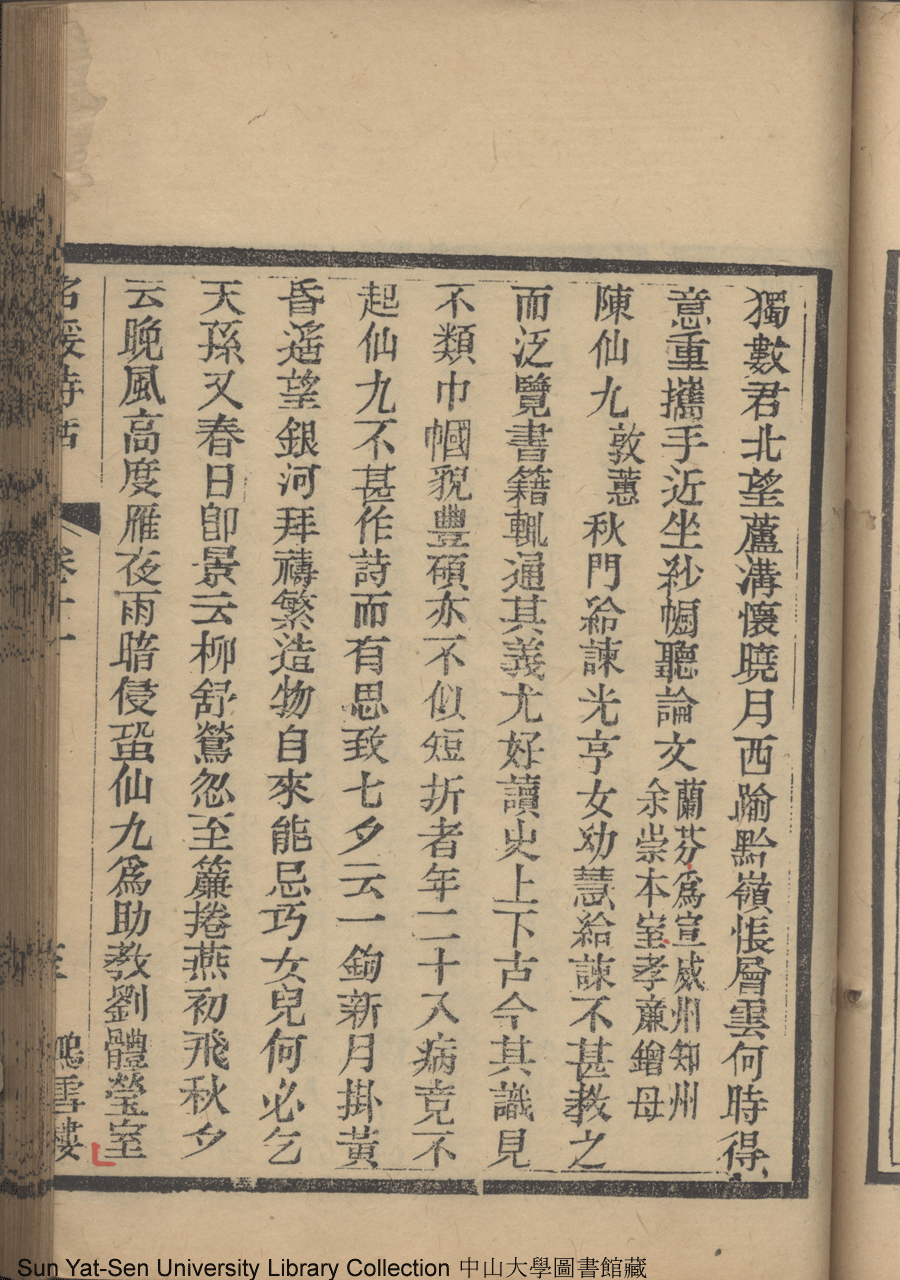 獨數君北望蘆溝懷曉月西踰黔嶺悵層雲何時得
意重攜手近坐紗㡌聽論文蘭芬爲宣威州知州余崇本室孝廉鐠母
陳仙九敦蕙秋門給諫光亨女幼慧給諫不甚教之
而泛覽書籍輒通其義尤好讀史上下古今其識見
不類巾幗貌豐碩亦不似短折者年二十入病竟不
起仙九不甚作詩而有思致七夕云一鉤新月掛黃
昏遥望銀河拜禱繁造物自來能忌巧女兒何必乞
天孫又春日卽景云柳舒鶯忽至簾捲燕初飛秋夕
云晚風高度雁夜雨暗侵蛩仙九爲助教劉體瑩室
名媛詩話 卷十一 鴻雪樓
Sun Yat-Sen University Library Collection 中山大學圖書館藏